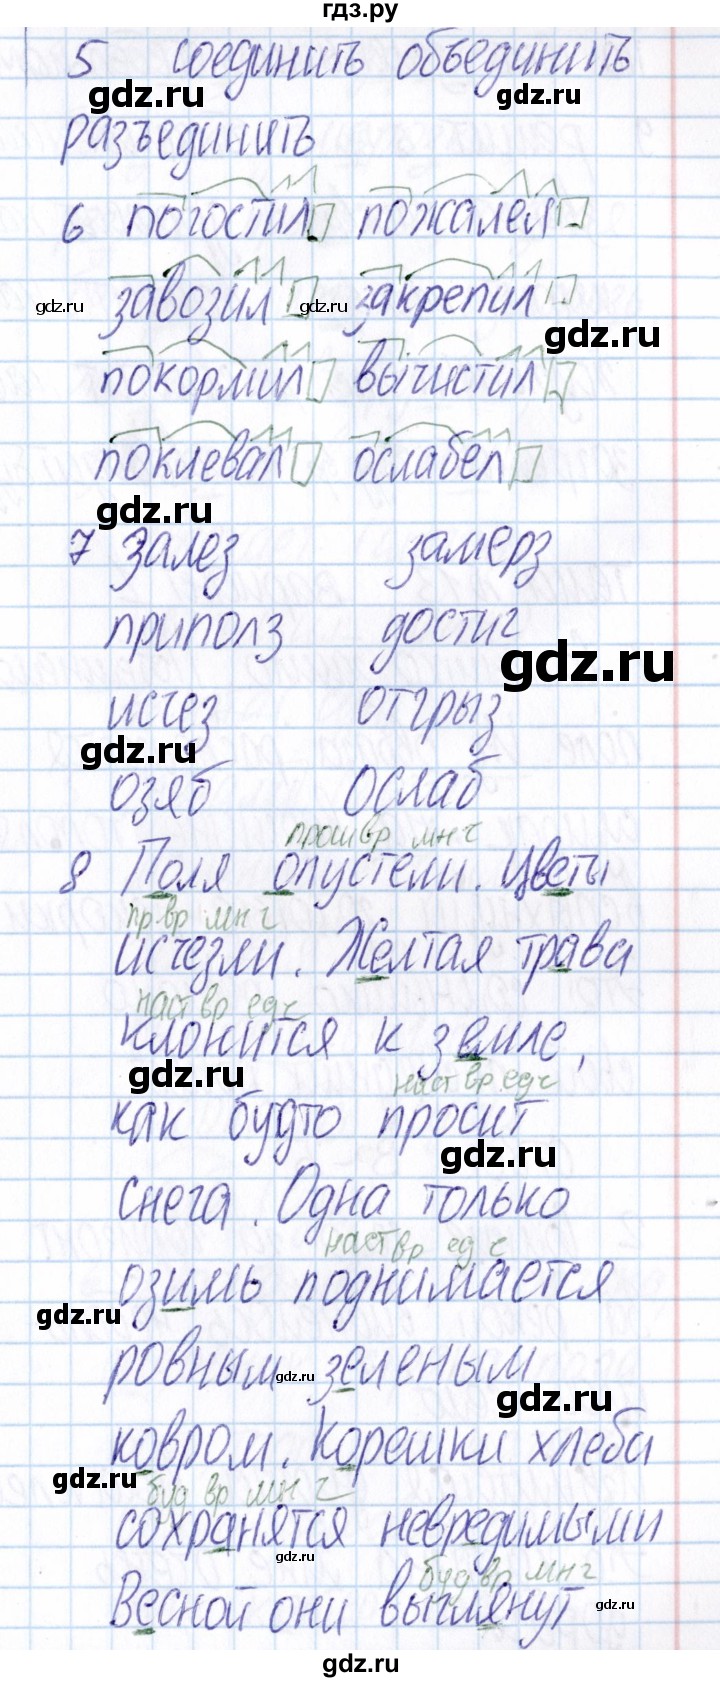 гдз.ру
5 соединить объединить
gdz.ru gdz.ru
разъединить
6 погостил пожалел
завозил закрепил
gdz.ru gdz.ru gdz.ru
покормил вычистил
поклевал ослабел
gdz.ru
7 залез замерз
приполз достиг
gdz.ru
исчез отгрыз
gdz.ru
озяб ослаб
прош вр мн ч
8 Поля опустели. Цветы
пр вр мн ч
исчезли. Желтая трава
наст вр ед ч
клонится к земле,
gdz.ru наст вр ед ч
как будто просит
gdz.ru
снега. Одна только
наст вр ед ч
озимь поднимается
gdz.ru
ровным зеленым
gdz.ru gdz.ru
ковром. Корешки хлеба
gdz.ru буд вр мн ч
сохранятся невредимыми
gdz.ru
буд вр мн ч
Весной они выглянут
gdz.ru
gdz.ru